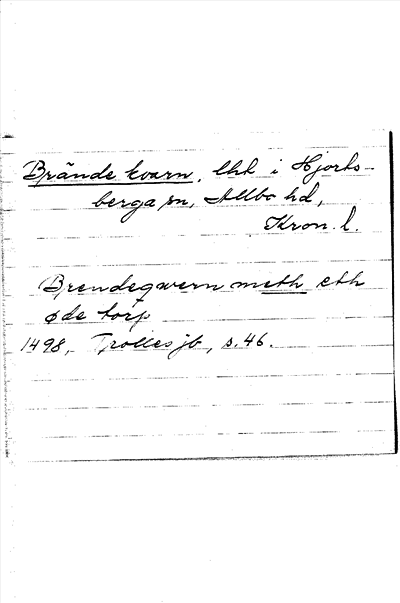 Brände kvarn, lhl i Hjorts-
berga sn, Allbo hd,
Kron. l.
Brendeqwern meth eth
øde torp
1498, Trolles jb, s. 46.